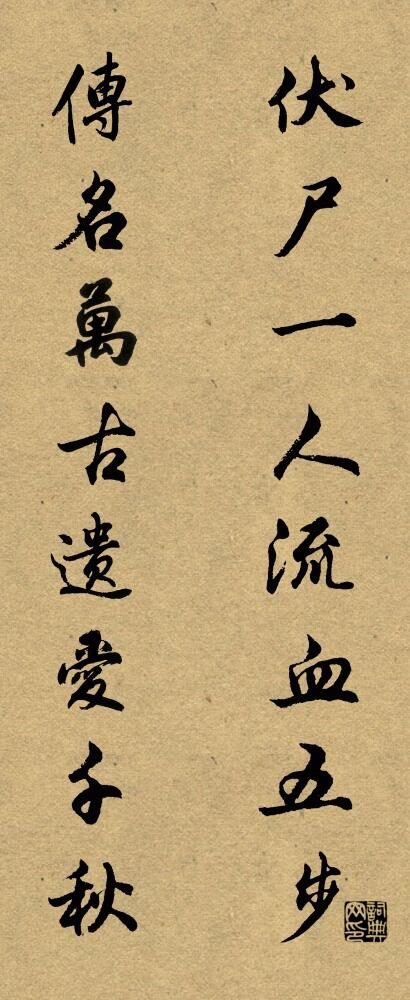 伏尸一人流血五步
傳名萬古遺愛千秋
詞典网印